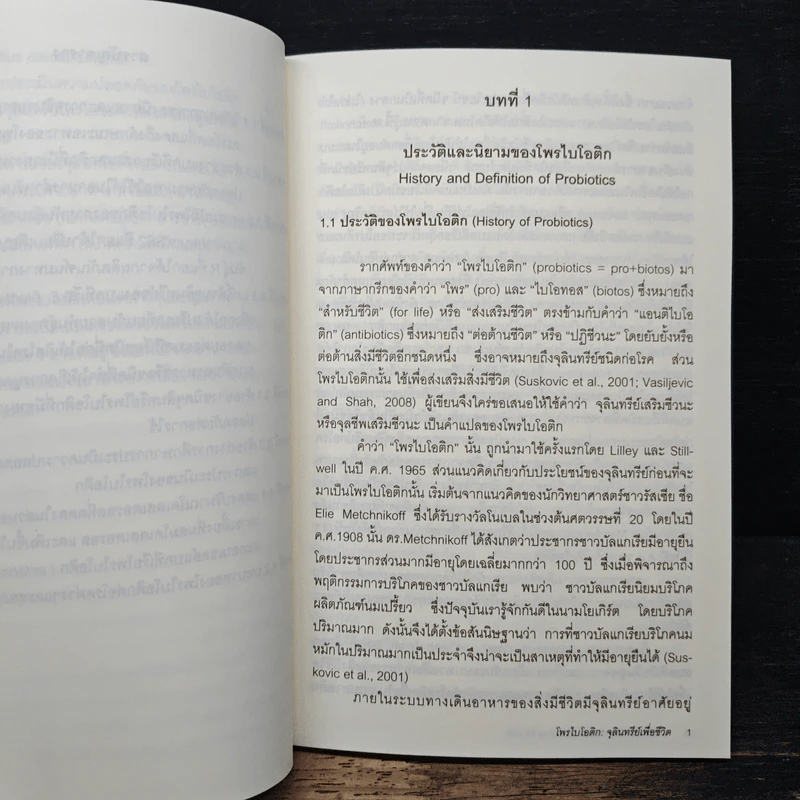 บทที่ 1
ประวัติและนิยามของโพรไบโอติก
History and Definition of Probiotics
1.1 ประวัติของโพรไบโอติก (History of Probiotics)
รากศัพท์ของคำว่า “โพรไบโอติก” (probiotics = pro+biotos) มา
จากภาษากรีกของคำว่า “โพร” (pro) และ “ไบโอทอส” (biotos) ซึ่งหมายถึง
“สำหรับชีวิต” (for life) หรือ “ส่งเสริมชีวิต” ตรงข้ามกับคำว่า “แอนติไบโอ
ติก” (antibiotics) ซึ่งหมายถึง “ต่อต้านชีวิต” หรือ “ปฏิชีวนะ” โดยยับยั้งหรือ
ต่อต้านสิ่งมีชีวิตอีกชนิดหนึ่ง ซึ่งอาจหมายถึงจุลินทรีย์ชนิดก่อโรค ส่วน
โพรไบโอติกนั้น ใช้เพื่อส่งเสริมสิ่งมีชีวิต (Suskovic et al., 2001; Vasiljevic
and Shah, 2008) ผู้เขียนจึงใคร่ขอเสนอให้ใช้คำว่า จุลินทรีย์เสริมชีวนะ
หรือจุลชีพเสริมชีวนะ เป็นคำแปลของโพรไบโอติก
คำว่า “โพรไบโอติก” นั้น ถูกนำมาใช้ครั้งแรกโดย Lilley และ Still-
well ในปี ค.ศ. 1965 ส่วนแนวคิดเกี่ยวกับประโยชน์ของจุลินทรีย์ก่อนที่จะ
มาเป็นโพรไบโอติกนั้น เริ่มต้นจากแนวคิดของนักวิทยาศาสตร์ชาวรัสเซีย ชื่อ
Elie Metchnikoff ซึ่งได้รับรางวัลโนเบลในช่วงต้นศตวรรษที่ 20 โดยในปี
ค.ศ.1908 นั้น ดร.Metchnikoff ได้สังเกตว่าประชากรชาวบัลแกเรียมีอายุยืน
โดยประชากรส่วนมากมีอายุโดยเฉลี่ยมากกว่า 100 ปี ซึ่งเมื่อพิจารณาถึง
พฤติกรรมการบริโภคของชาวบัลแกเรีย พบว่า ชาวบัลแกเรียนิยมบริโภค
ผลิตภัณฑ์นมเปรี้ยว ซึ่งปัจจุบันเรารู้จักกันดีในนามโยเกิร์ต โดยบริโภค
ปริมาณมาก ดังนั้นจึงได้ตั้งข้อสันนิษฐานว่า การที่ชาวบัลแกเรียบริโภคนม
หมักในปริมาณมากเป็นประจำจึงน่าจะเป็นสาเหตุที่ทำให้มีอายุยืนได้ (Sus-
kovic et al., 2001)
ภายในระบบทางเดินอาหารของสิ่งมีชีวิตมีจุลินทรีย์อาศัยอยู่
โพรไบโอติก: จุลินทรีย์เพื่อชีวิต 1